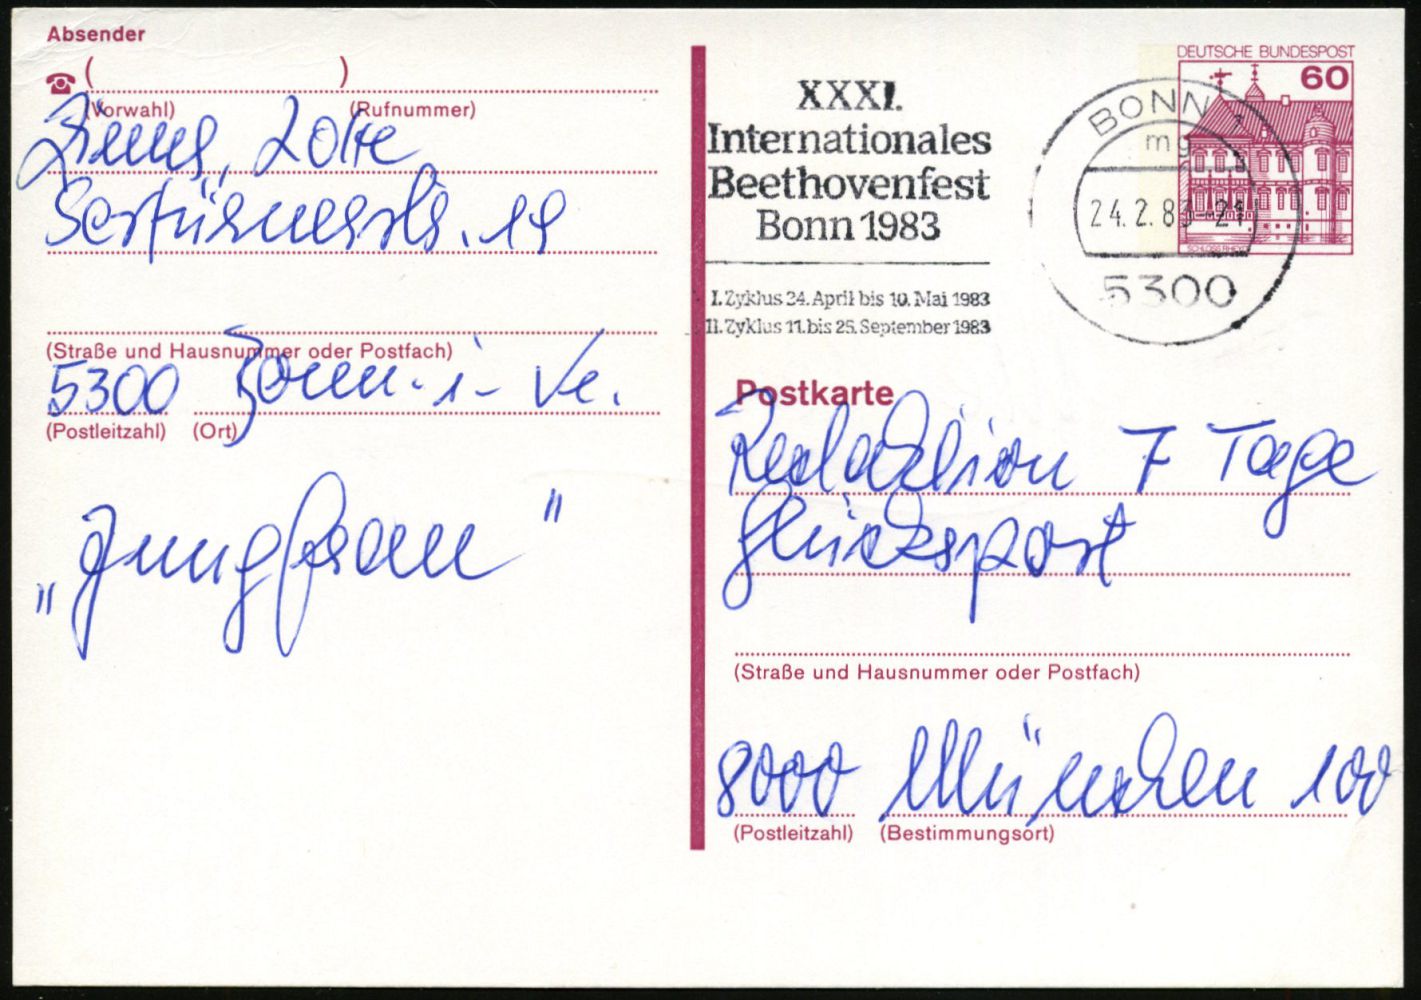 Absender
( )
(Vorwahl) (Rufnummer)
Lotte
Sertürnerstr. 19
(Straße und Hausnummer oder Postfach)
5300 Bonn-1- Ve.
(Postleitzahl) (Ort)
„Jungfrau"
XXXI.
Internationales
Beethovenfest
Bonn 1983
I. Zyklus 24. April bis 10. Mai 1983
II. Zyklus 11. bis 25. September 1983
BONN 1
mg
24.2.83-21
5300
DEUTSCHE BUNDESPOST
60
SCHLOSS RHEYDT
Postkarte
Redaktion 7 Tage
Glückspost
(Straße und Hausnummer oder Postfach)
8000 München 100
(Postleitzahl) (Bestimmungsort)